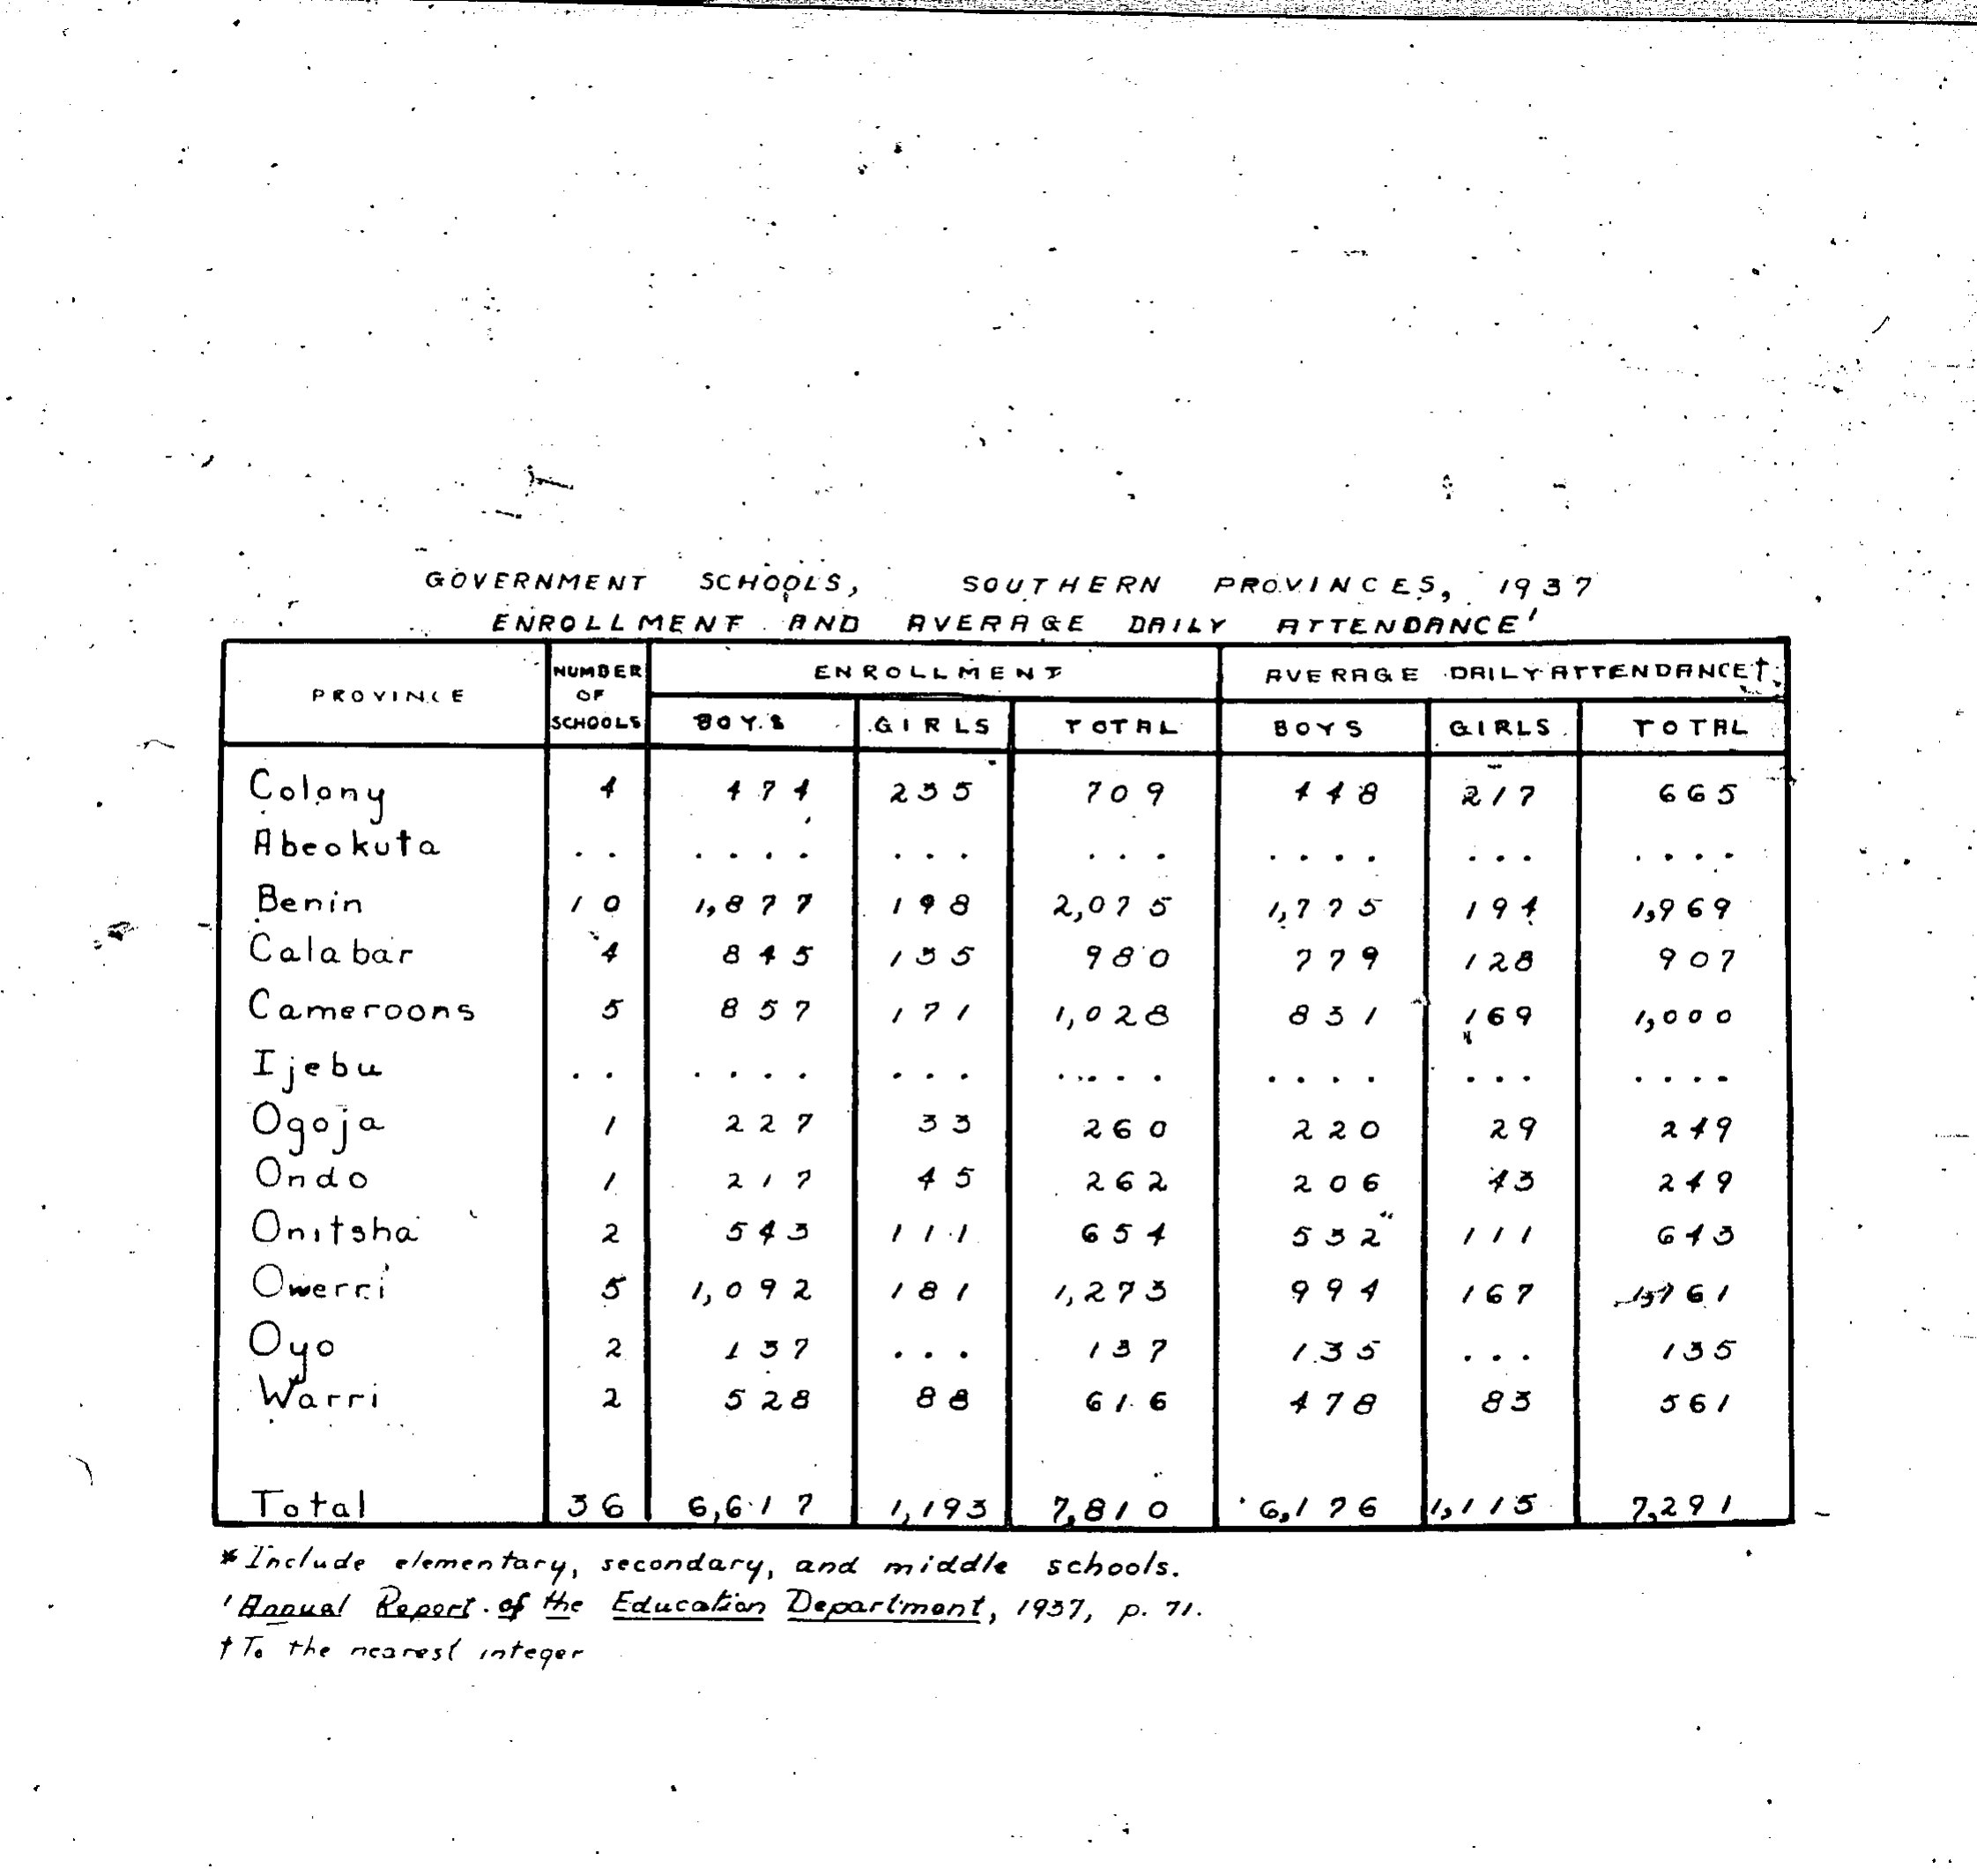 GOVERNMENT SCHOOLS, SOUTHERN PROVINCES, 1937
ENROLLMENT AND AVERAGE DAILY ATTENDANCE¹
PROVINCE NUMBER OF SCHOOLS ENROLLMENT AVERAGE DAILY ATTENDANCE†
BOYS GIRLS TOTAL BOYS GIRLS TOTAL
Colony 4 474 235 709 448 217 665
Abeokuta .. .... ... ... .... ... ....
Benin 10 1,877 198 2,075 1,775 194 1,969
Calabar 4 845 135 980 779 128 907
Cameroons 5 857 171 1,028 831 169 1,000
Ijebu .. .... ... .... .... ... ....
Ogoja 1 227 33 260 220 29 249
Ondo 1 217 45 262 206 43 249
Onitsha 2 543 111 654 532 111 643
Owerri 5 1,092 181 1,273 994 167 1,161
Oyo 2 137 ... 137 135 ... 135
Warri 2 528 88 616 478 83 561
Total 36 6,617 1,193 7,810 6,176 1,115 7,291
* Include elementary, secondary, and middle schools.
¹ Annual Report of the Education Department, 1937, p. 71.
† To the nearest integer